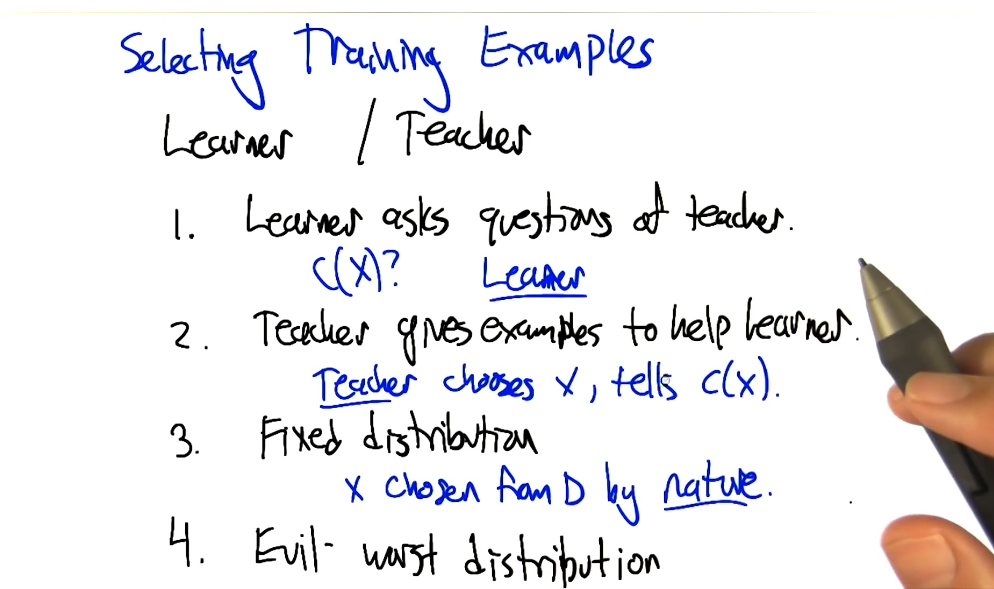 Selecting Training Examples
Learner / Teacher
1. Learner asks questions of teacher.
c(x)? Learner
2. Teacher gives examples to help learner.
Teacher chooses x, tells c(x).
3. Fixed distribution
x chosen from D by nature.
4. Evil - worst distribution